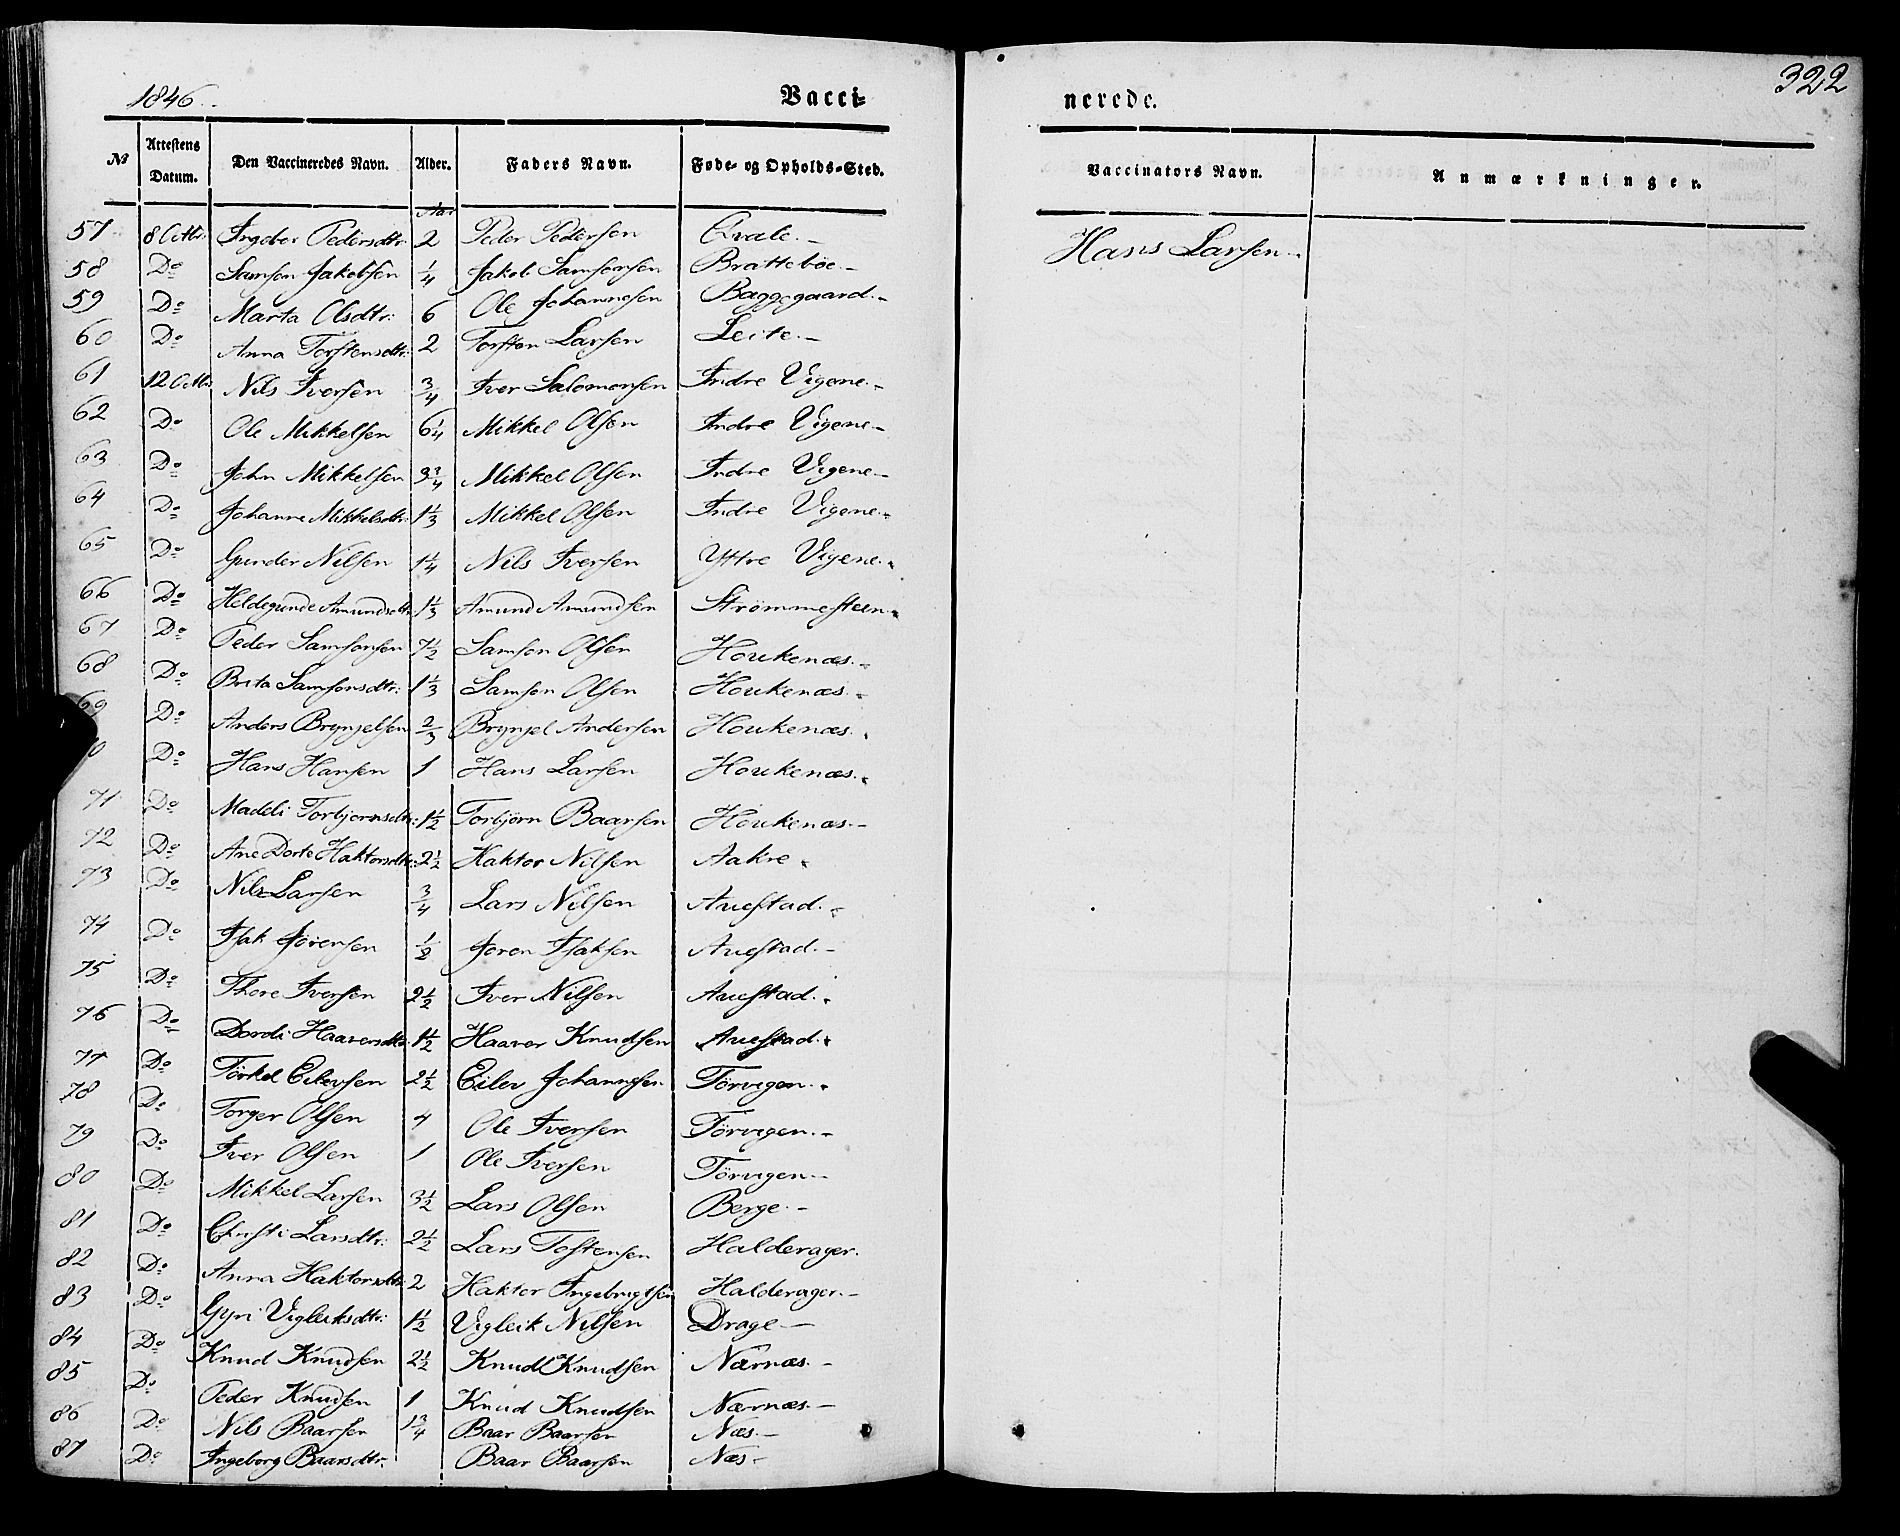 1846.
Vacci-
nerede.
322
No
Attestens Datum.
Den Vaccineredes Navn.
Alder.
Faders Navn.
Føde- og Opholds-Sted.
Vaccinators Navn.
Anmærkninger.
Aar
57 8 Octbr: Ingebor Pedersdtr: 2 Peder Pedersen Qvale.-
Hans Larsen.-
58 Do Samson Jakobsen 1/4 Jakob Samsonsen Brattebøe.-
59 Do Marta Olsdtr: 6 Ole Johannesen Baggegaard.-
60 Do Anna Torstensdtr: 2 Torsten Larsen Leite.-
61 12 Octbr Nils Iversen 3/4 Iver Salomonsen Indre Vigene.-
62 Do Ole Mikkelsen 6 1/4 Mikkel Olsen Indre Vigene.-
63 Do John Mikkelsen 3 3/4 Mikkel Olsen Indre Vigene.-
64 Do Johanne Mikkelsdtr: 1 1/3 Mikkel Olsen Indre Vigene.-
65 Do Gunder Nilsen 1 1/4 Nils Iversen Yttre Vigene.-
66 Do Heldegunde Amundsdtr 1 1/3 Amund Amundsen Strømmesteen.-
67 Do Peder Samsonsen 7 1/2 Samson Olsen Houkenæs.-
68 Do Brita Samsonsdtr: 1 1/3 Samson Olsen Houkenæs.-
69 Do Anders Brynjelsen 2/3 Brynjel Andersen Houkenæs.-
0 Do Hans Hansen 1 Hans Larsen Houkenæs.-
71 Do Maddi Torbjørnsdtr: 1 1/2 Torbjørn Baarsen Houkenæs.-
72 Do Ane Dorte Haktorsdtr: 2 1/2 Haktor Nilsen Aakre.
73 Do Nils Larsen 3/4 Lars Nilsen Auestad.-
74 Do Isak Jørensen 1/2 Joren Isaksen Auestad.-
75 Do Thore Iversen 2 1/2 Iver Nilsen Auestad.-
76 Do Dordi Haaversdtr 1 1/2 Haaver Knudsen Auestad.-
77 Do Törkel Eilevsen 2 1/2 Eilev Johannesen Törvigen.-
78 Do Torger Olsen 4 Ole Iversen Törvigen.-
79 Do Iver Olsen 1 Ole Iversen Törvigen.-
80 Do Mikkel Larsen 3 1/2 Lars Olsen Berge.-
81 Do Christi Larsdtr: 2 1/2 Lars Tostensen Halderager.
82 Do Anna Haktorsdtr: 2 Haktor Ingebrigtsen Halderager.-
83 Do Gyri Vigleiksdtr: 1 1/2 Vigleik Nilsen Drage.-
84 Do Knud Knudsen 2 1/2 Knud Knudsen Nærnæs.-
85 Do Peder Knudsen 1 Knud Knudsen Nærnæs.-
86 Do Nils Baarsen 1 3/4 Baar Baarsen Næs.-
87 Do Ingeborg Baarsdtr: Baar Baarsen Næs.-